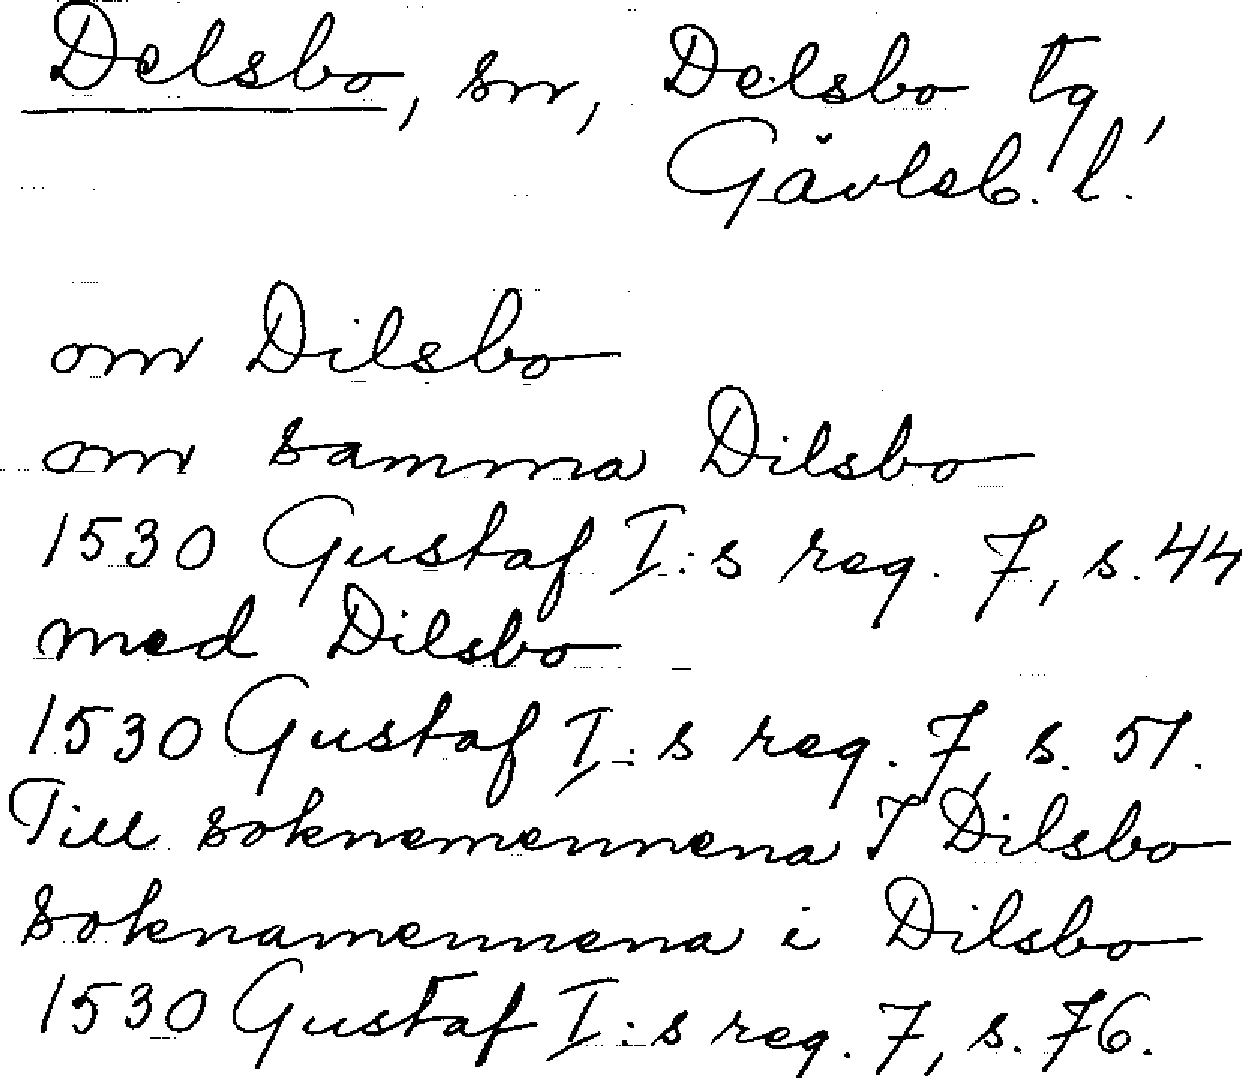 Delsbo, sn, Delsbo tg,
Gävleb. l.
om Dilsbo
om samma Dilsbo
1530 Gustaf I:s reg. 7, s. 44
med Dilsbo
1530 Gustaf I:s reg. 7, s. 51.
Till soknemennena I Dilsbo
soknamennena i Dilsbo
1530 Gustaf I:s reg. 7, s. 76.